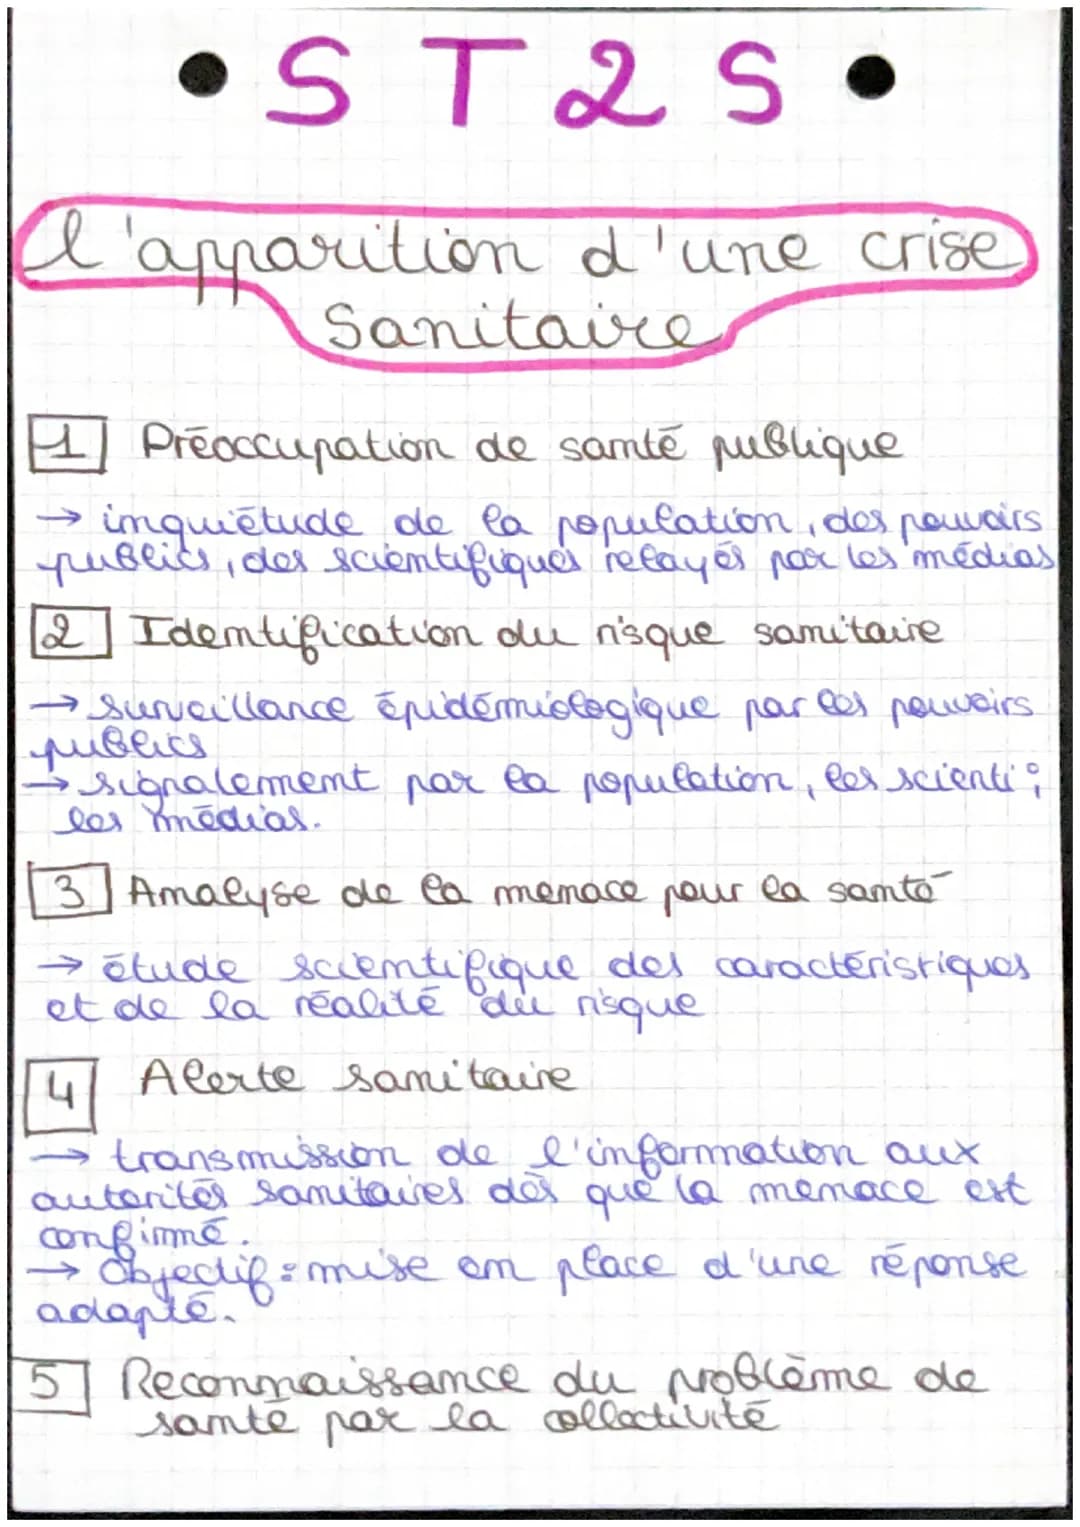 • S T 2 S •
l'apparition d'une crise
Sanitaire
1 Préoccupation de santé publique
→ inquiétude de la population, des pouvoirs
publics, des scientifiques relayés par les médias
2 Identification du risque sanitaire
→ surveillance épidémiologique par les pouvoirs
publics
→ signalement par la population, les scienti°,
les médias.
3 Analyse de la menace pour la santé
→ étude scientifique des caractéristiques
et de la réalité du risque
4 Alerte sanitaire
→ transmission de l'information aux
autorités sanitaires dès que la menace est
confimé.
→ Objectif : mise en place d'une réponse
adapté.
5 Reconnaissance du problème de
santé par la collectivité